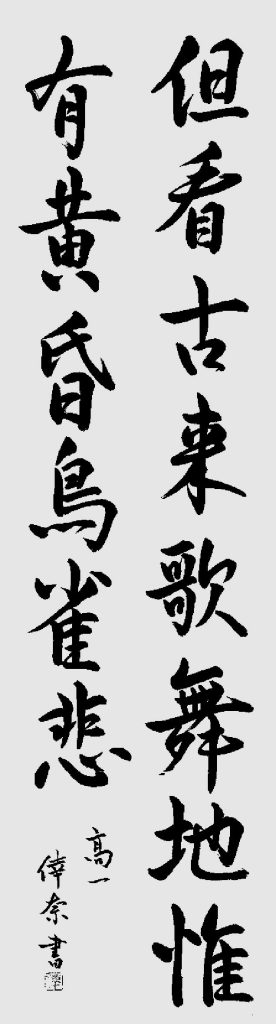 但看古来歌舞地惟
有黄昏鳥雀悲
高一
倖奈書